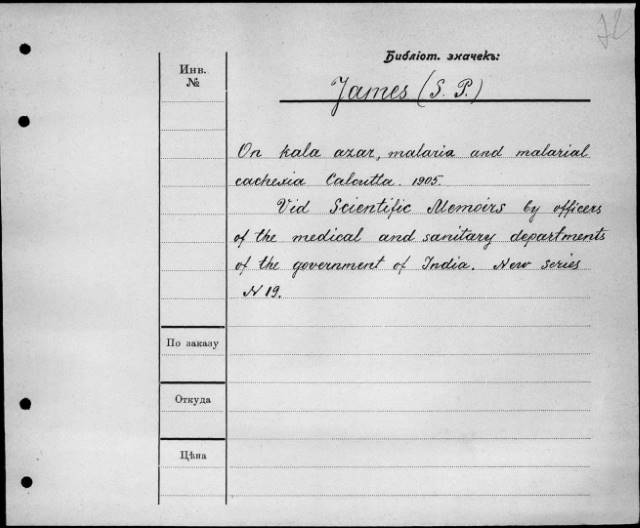 Библіот. значекъ:
Инв.
№
James (S. P.)
On kala azar, malaria and malarial
cachexia Calcutta. 1905.
Vid Scientific Memoirs by officers
of the medical and sanitary departments
of the government of India. New series
N 19.
По заказу
Откуда
Цѣна